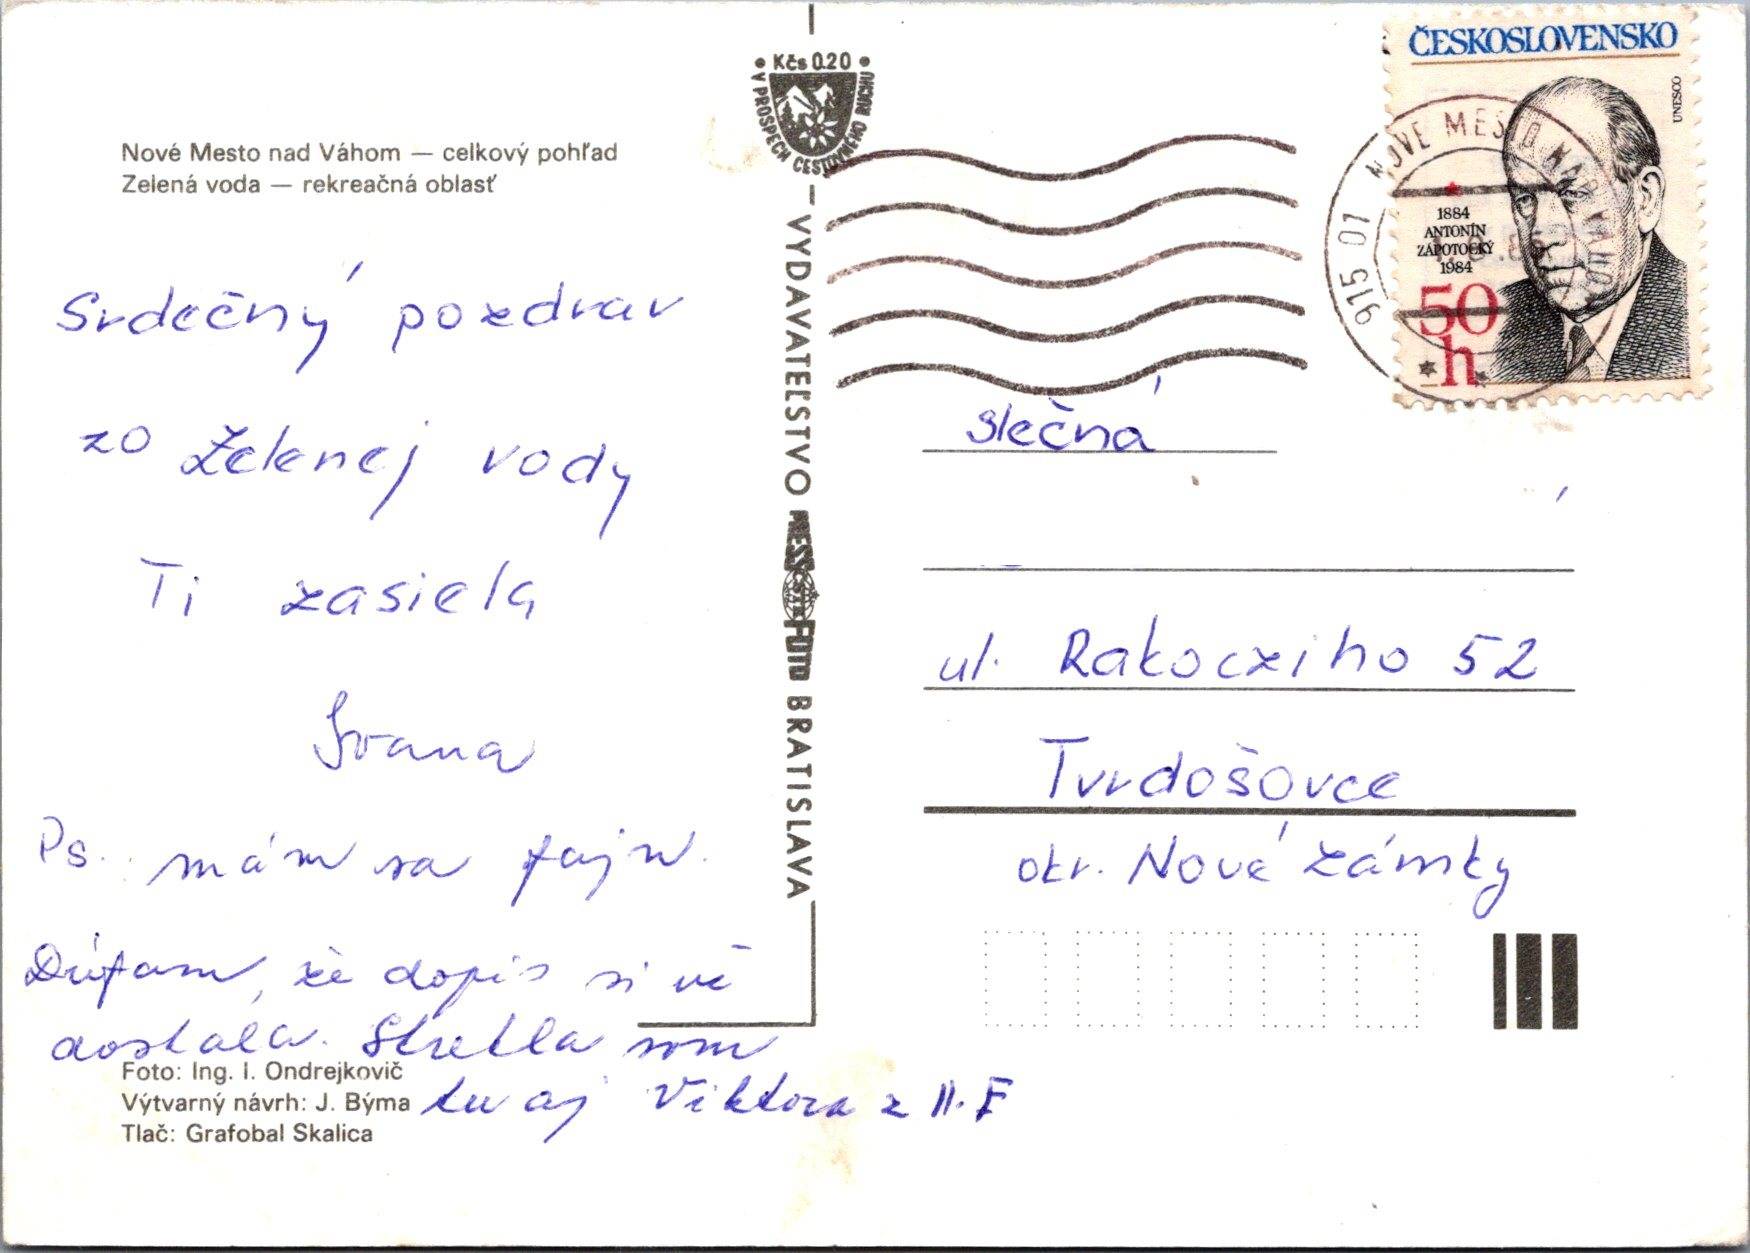 Nové Mesto nad Váhom — celkový pohľad
Zelená voda — rekreačná oblasť
Srdečný pozdrav
zo Zelenej vody
Ti zasiela
Ivana
Ps. mám sa fajn.
Dúfam, že dopis si už
dostala. Stretla som
tu aj Viktora z II. F
Foto: Ing. I. Ondrejkovič
Výtvarný návrh: J. Býma
Tlač: Grafobal Skalica
Kčs 0.20
V PROSPECH CESTOVNÉHO RUCHU
VYDAVATEĽSTVO PRESSFOTO BRATISLAVA
915 01 NOVÉ MESTO NAD VÁHOM
ČESKOSLOVENSKO
UNESCO
1884
ANTONÍN
ZÁPOTOCKÝ
1984
50
h
slečná
ul. Rakocziho 52
Tvrdošovce
okr. Nové Zámky